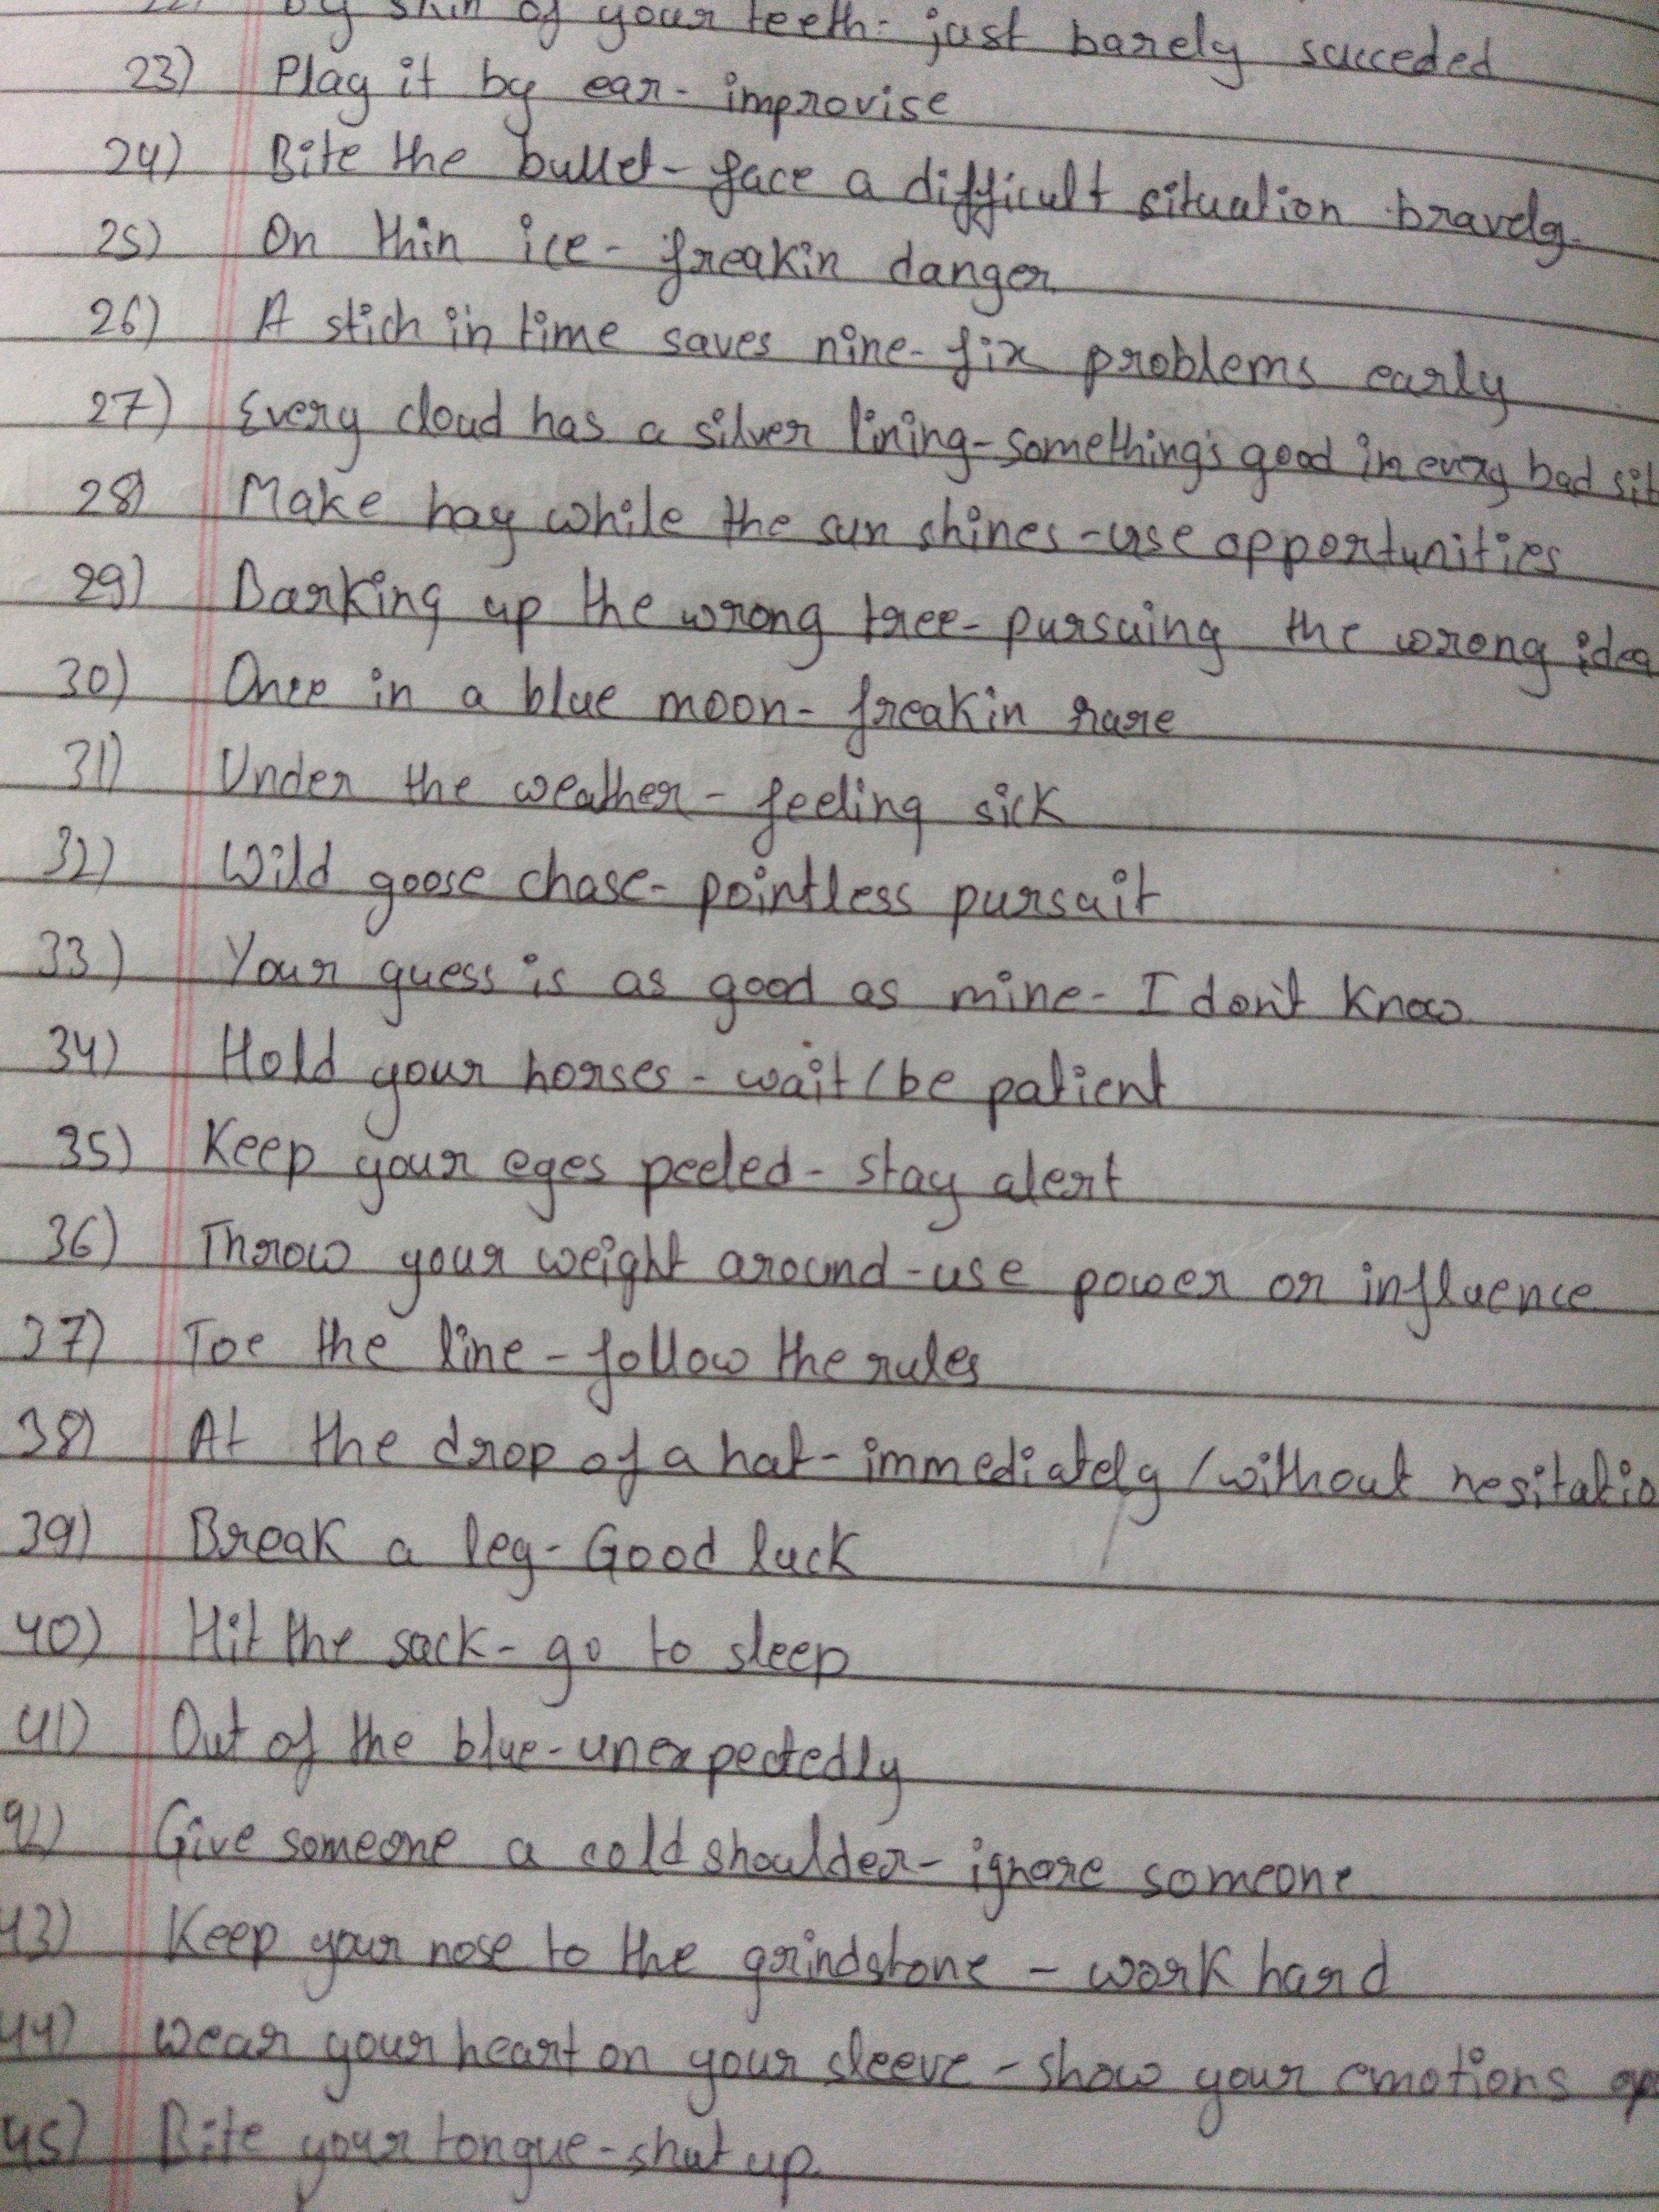 by skin of your teeth - just barely succeded
23) Play it by ear - improvise
24) Bite the bullet - face a difficult situation bravely.
25) On thin ice - freakin danger
26) A stich in time saves nine - fix problems early
27) Every cloud has a silver lining - something's good in every bad sit
28) Make hay while the sun shines - use opportunities
29) Barking up the wrong tree - pursuing the wrong idea
30) Once in a blue moon - freakin rare
31) Under the weather - feeling sick
32) Wild goose chase - pointless pursuit
33) Your guess is as good as mine - I don't know
34) Hold your horses - wait / be patient
35) Keep your eyes peeled - stay alert
36) Throw your weight around - use power or influence
37) Toe the line - follow the rules
38) At the drop of a hat - immediately / without hesitatio
39) Break a leg - Good luck
40) Hit the sack - go to sleep
41) Out of the blue - unexpectedly
42) Give someone a cold shoulder - ignore someone
43) Keep your nose to the grindstone - work hard
44) Wear your heart on your sleeve - show your emotions op
45) Bite your tongue - shut up